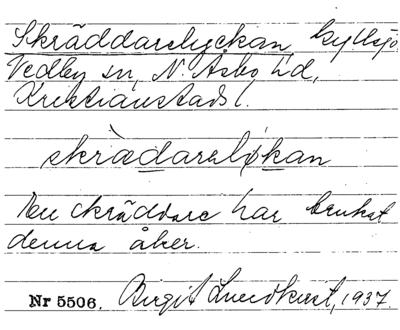 Skräddarelyckan Gyllsjö
Vedby sn, N. Åsbo hd,
Kristianstads l.
skrädarelykan
En skräddare har brukat
denna åker.
Nr 5506. Birgit Lundkvist, 1937.